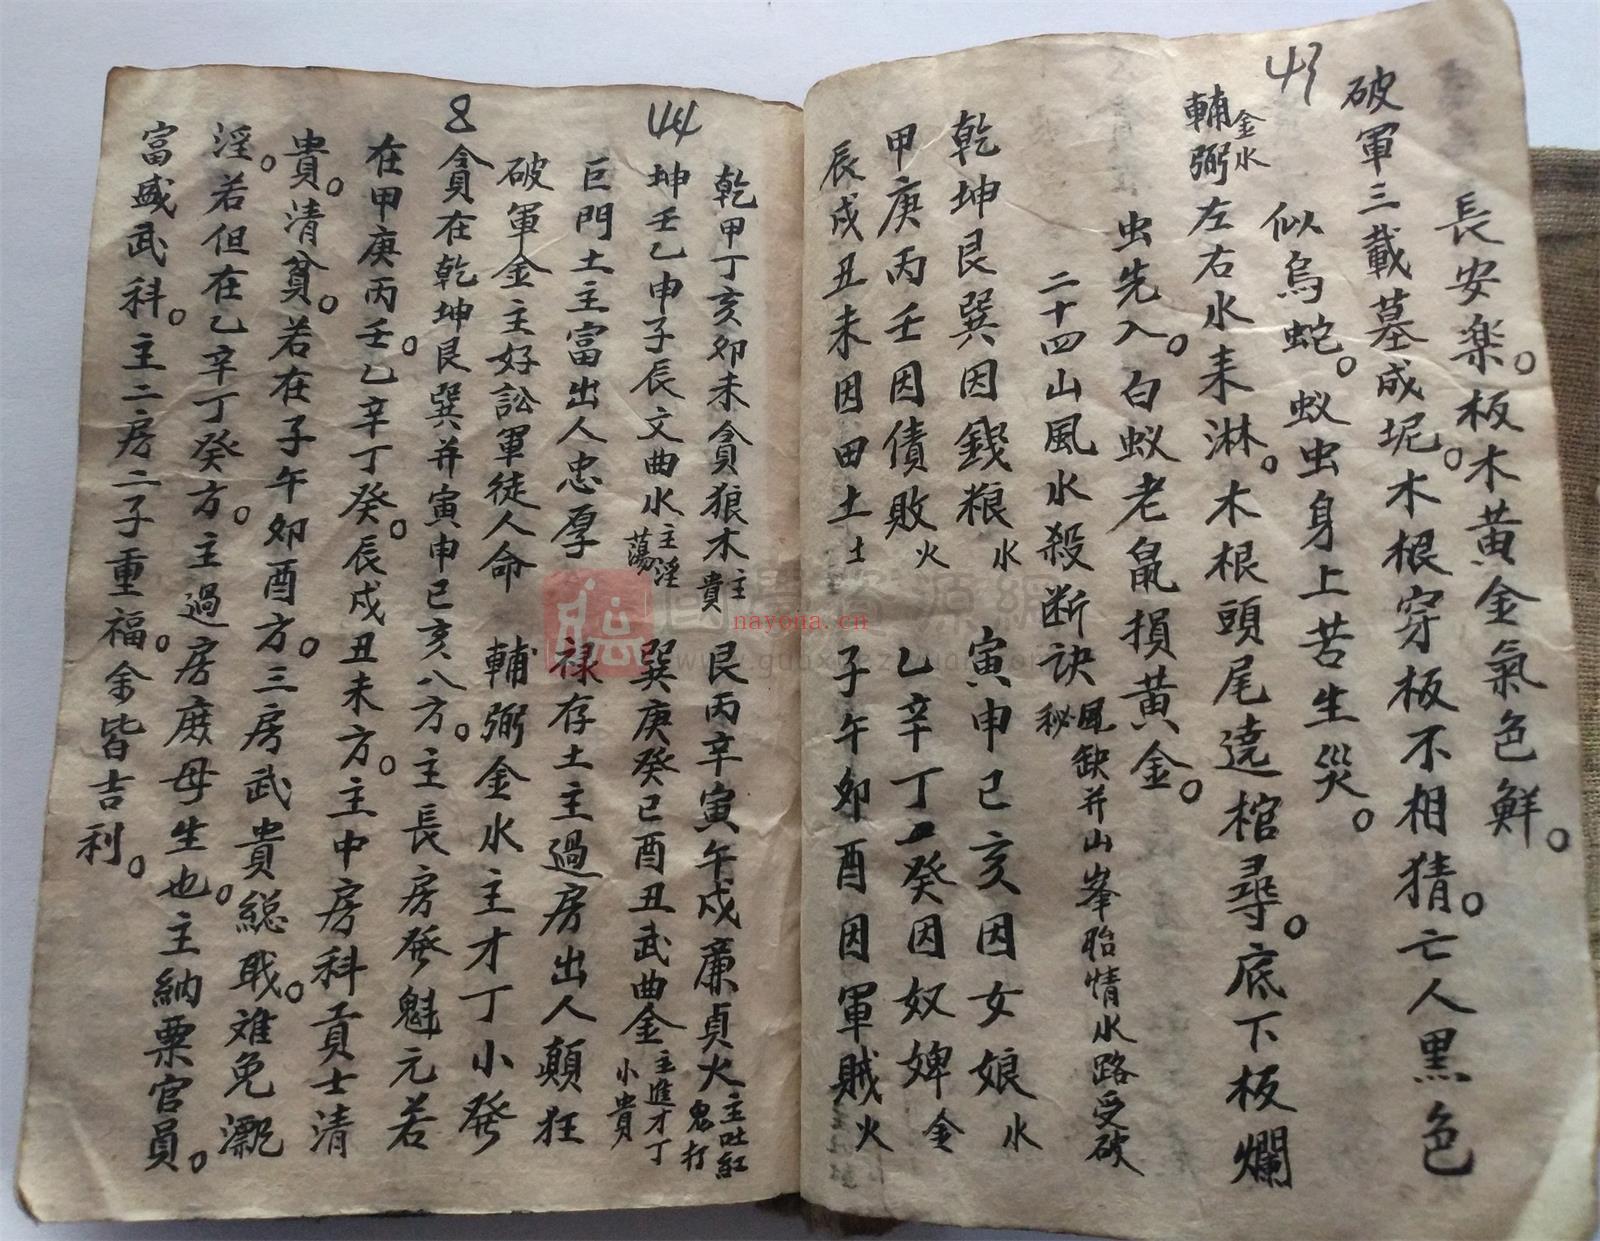 43
長安楽。板木黃金氣色鮮。
破軍三載墓成坭。木根穿板不相猜。亡人黑色
似烏蛇。蚁虫身上苦生災。
輔弼金水左右水来淋。木根頭尾遶棺尋。底下板爛
虫先入。白蚁老鼠損黃金。
二十四山風水殺断訣秘風缺并山峯胎情水路受破
乾坤艮巽因錢粮水 寅申巳亥因女娘水
甲庚丙壬因債敗火 乙辛丁癸因奴婢金
辰戌丑未因田土土 子午卯酉因軍賊火
44
乾甲丁亥卯未貪狼木主貴 艮丙辛寅午戌廉貞火主吐紅鬼打
坤壬乙申子辰文曲水主淫蕩 巽庚癸巳酉丑武曲金主進才丁小貴
巨門土主富出人忠厚 祿存土主過房出人顛狂
破軍金主好訟軍徒人命 輔弼金水主才丁小發
8貪在乾坤艮巽并寅申巳亥八方。主長房發魁元若
在甲庚丙壬乙辛丁癸。辰戌丑未方。主中房科貢士清
貴。清貧。若在子午卯酉方。三房武貴縂戢。难免飄
淫。若但在乙辛丁癸方。主過房庶母生也。主納粟官員。
富盛武科。主二房二子重福。余皆吉利。
國學資源網
nayona.cn
www.guoxueziyuan.com